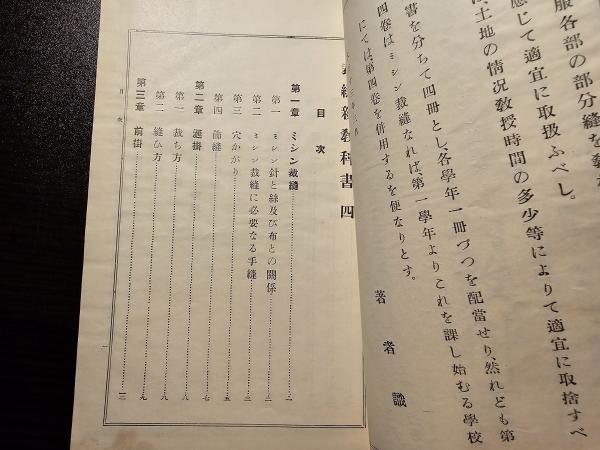 服各部の部分縫を
應じて適宜に取扱ふべし。
土地の情況敎授時間の多少等によりて適宜に取捨すべ
書を分ちて四冊とし、各學年一冊づつを配當せり、然れども第
四卷はミシン裁縫なれば、第一學年よりこれを課し始むる學校
にては、第四卷を併用するを便なりとす。
著者識
敎科書 四
目次
第一章 ミシン裁縫
第一 ミシン針と絲及び布との關係
第二 ミシン裁縫に必要なる手縫
第三 穴かがり 五
第四 飾縫 五
第二章 涎掛 七
第一 裁ち方 八
第二 縫ひ方 八
第三章 前掛 九
目次